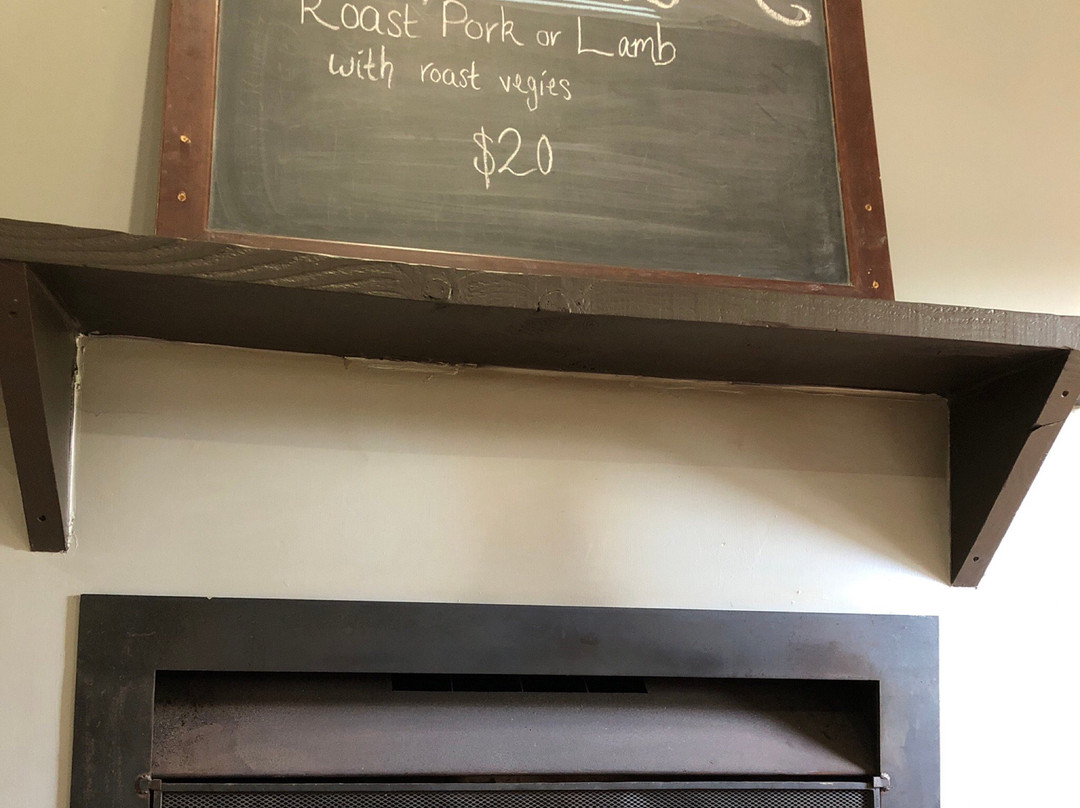 Roast Pork or Lamb
with roast vegies
$20